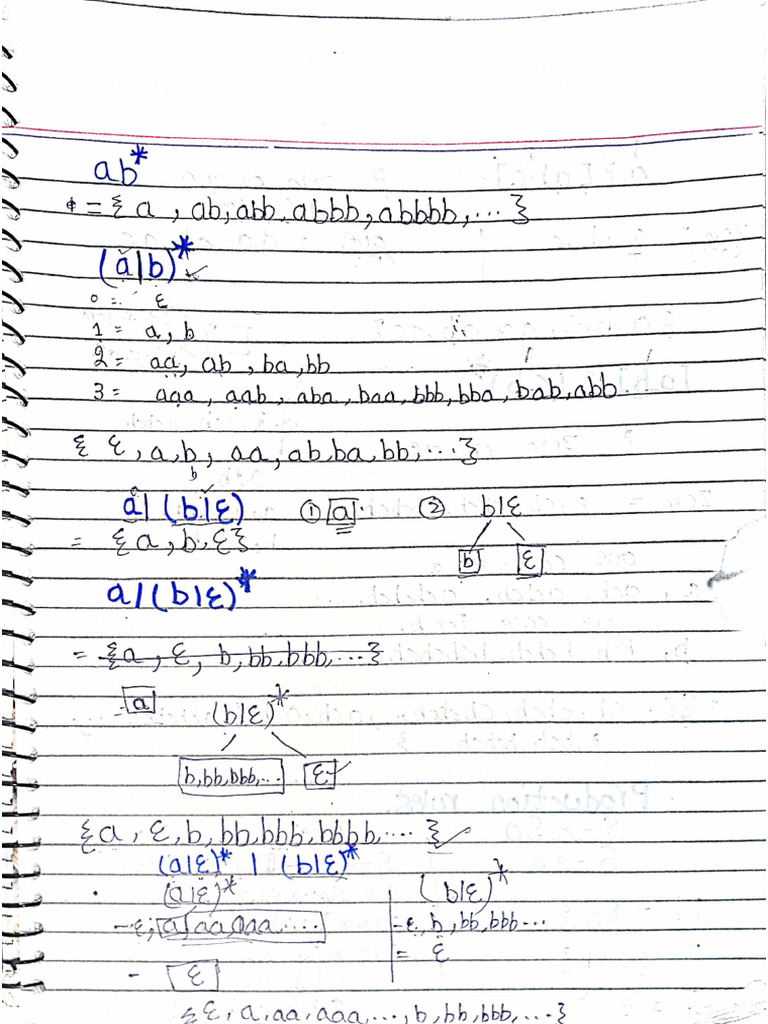 ab*
= { a , ab, abb, abbb, abbbb, ... }
(a|b)*
0 = ε
1 = a, b
2 = aa, ab, ba, bb
3 = aaa, aab, aba, baa, bbb, bba, bab, abb.
{ ε, a, b, aa, ab, ba, bb, ... }
b
a| (b|ε) ① a ② b|ε
= {a, b, ε} b ε
a|(b|ε)*
= {a, ε, b, bb, bbb, ...}
- a (b|ε)*
b, bb, bbb, ... ε
{a, ε, b, bb, bbb, bbbb, ... }
(a|ε)* | (b|ε)*
(a|ε)* (b|ε)*
- ε, a, aa, aaa, .... - ε, b, bb, bbb ...
- ε = ε
{ε, a, aa, aaa, ..., b, bb, bbb, ...}